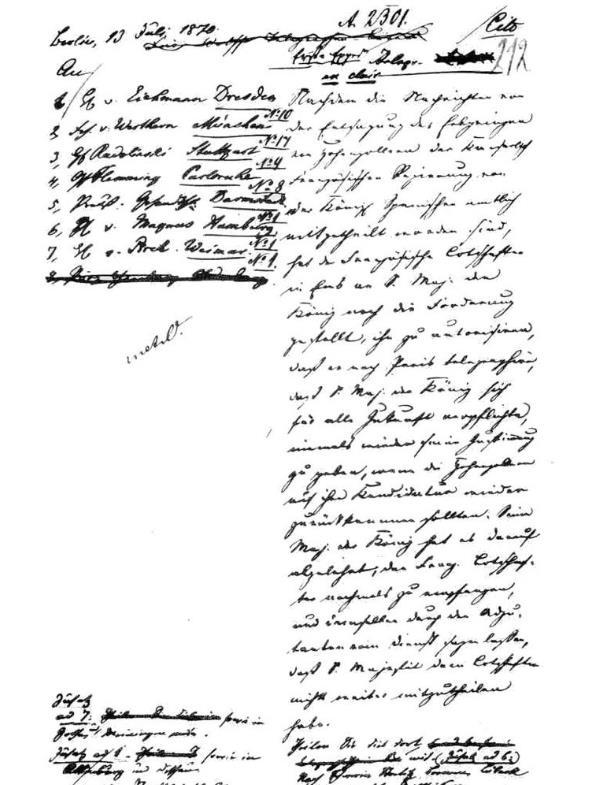 Berlin, 13 Juli, 1870. A. 2301. Cito
212
Telegr.
en clair
An
1, Gf v. Eichmann Dresden No 10
2, Frh. v. Werthern München No 17
3, Gf Radolinski Stuttgart No 4
4, Gf Flemming Carlsruhe No 8
5, Preuß. Gesandtsch. Darmstadt No 1
6, H v. Magnus Hamburg No 1
7, H v. Weimar No 1
Nachdem die Nachrichten von
der Entsagung des Erbprinzen
von Hohenzollern der Kaiserlich
Französischen Regierung von
der Königl Spanischen amtlich
mitgetheilt worden sind,
hat der Französische Botschafter
in Ems an S. Maj. den
König noch die Forderung
gestellt, ihn zu autorisiren,
daß er nach Paris telegraphire,
daß S. Maj. der König sich
für alle Zukunft verpflichte,
niemals wieder seine Zustimmung
zu geben, wenn die Hohenzollern
auf ihre Kandidatur wieder
zurückkommen sollten. Seine
Maj. der König hat es darauf
abgelehnt, den Franz. Botschaf-
ter nochmals zu empfangen,
und demselben durch den Adju-
tanten vom Dienst sagen lassen,
daß S. Majestät dem Botschafter
nichts weiter mitzutheilen
habe.
Zusatz
ad 7: sowie in
Meiningen
Zusatz ad 1 sowie in
Altenburg und Dessau
Theilen Sie dies dort mit (Zusatz ad 6:
Lübeck